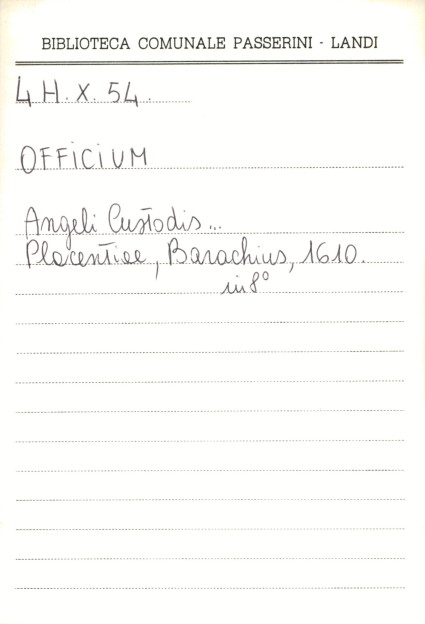 BIBLIOTECA COMUNALE PASSERINI - LANDI
4 H. X. 54.
OFFICIUM
Angeli Custodis...
Placentiae, Barachius, 1610.
in 8°